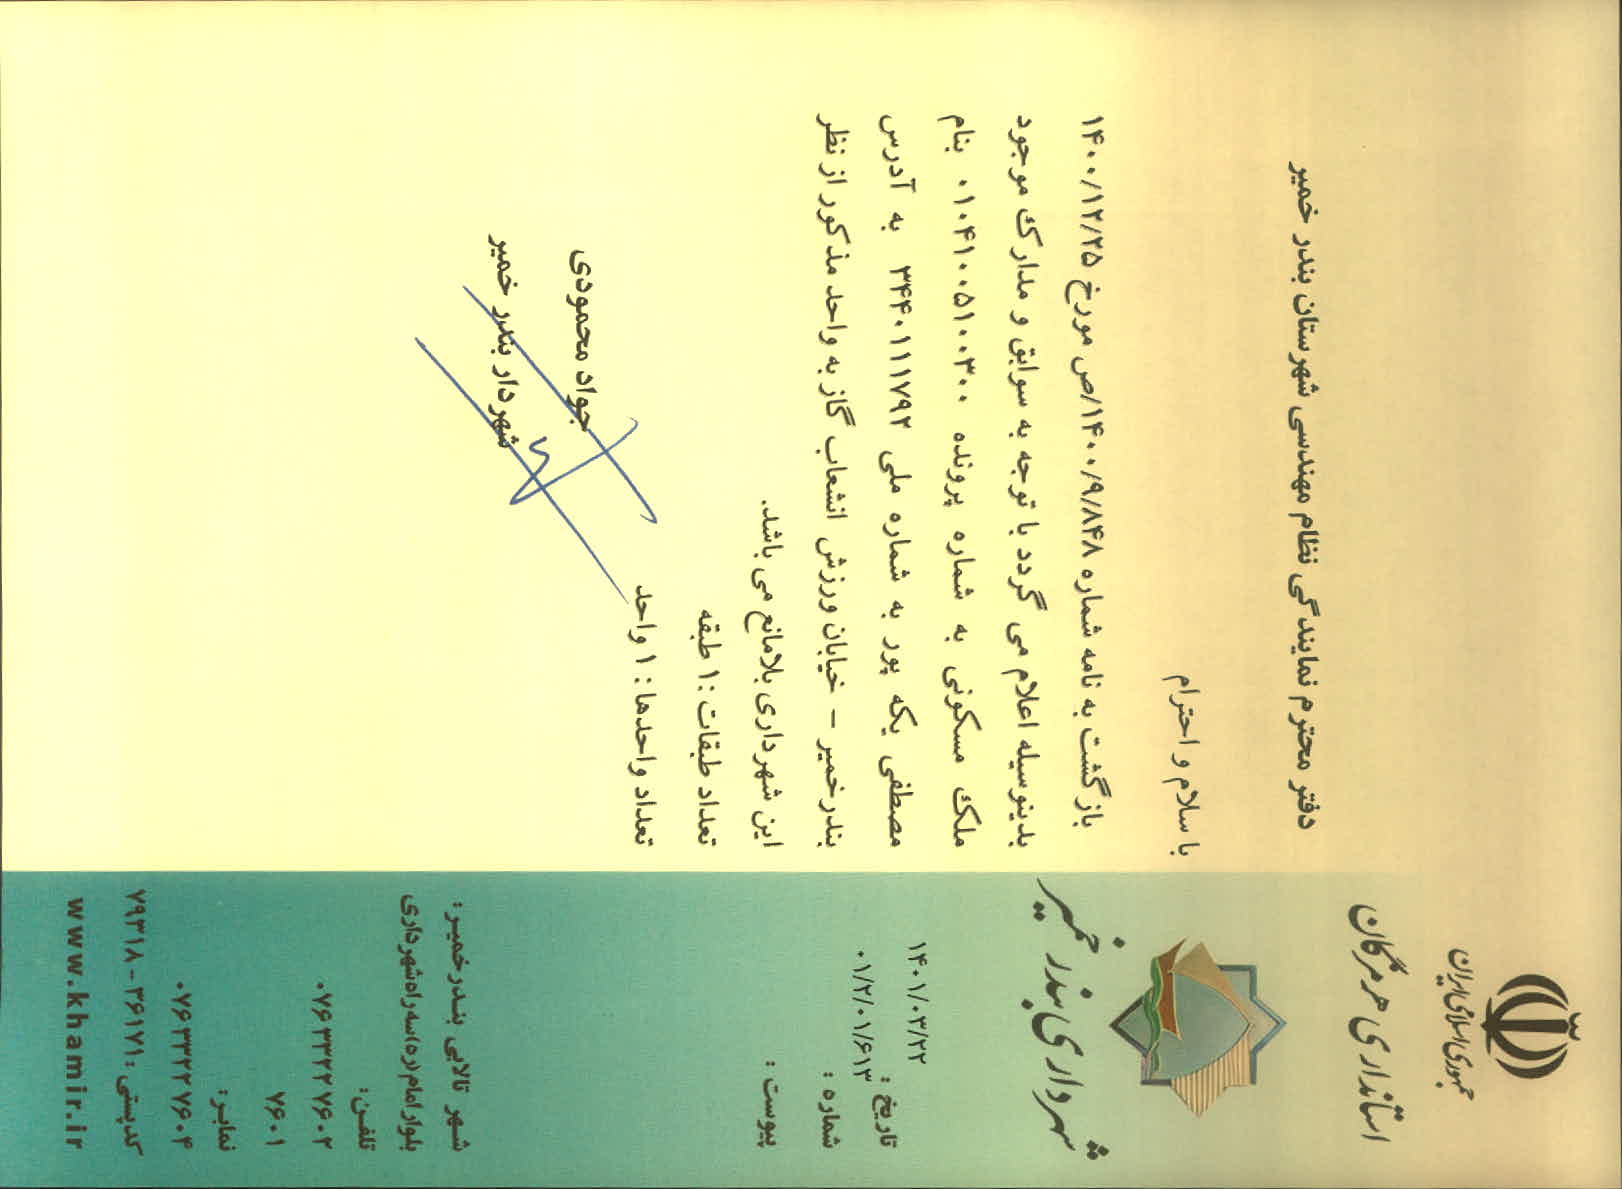 جمهوری اسلامی ایران
استانداری هرمزگان
شهرداری بندر خمیر
تاریخ : ۱۴۰۱/۰۳/۲۲
شماره : ۰۱/۲/۰۱/۶۱۳
پیوست :
دفتر محترم نمایندگی نظام مهندسی شهرستان بندر خمیر
با سلام و احترام
بازگشت به نامه شماره ۱۴۰۰/۹/۸۴۸/ص مورخ ۱۴۰۰/۱۲/۲۵
بدینوسیله اعلام می گردد با توجه به سوابق و مدارک موجود
ملک مسکونی به شماره پرونده ۰۱۰۴۱۰۰۵۱۰۰۳۰۰ بنام
مصطفی یکه پور به شماره ملی ۳۴۴۰۱۱۱۷۹۲ به آدرس
بندرخمیر – خیابان ورزش انشعاب گاز به واحد مذکور از نظر
این شهرداری بلامانع می باشد.
تعداد طبقات : ۱ طبقه
تعداد واحدها : ۱ واحد
جواد محمودی
شهردار بندر خمیر
شهر تالابی بندرخمیر :
بلوار امام (ره) سه راه شهرداری
تلفن:
۰۷۶۳۳۲۲۷۶۰۲
۷۶۰۱
نمابر:
۰۷۶۳۳۲۲۷۶۰۴
کدپستی : ۳۶۱۷۱ - ۷۹۳۱۸
www.khamir.ir